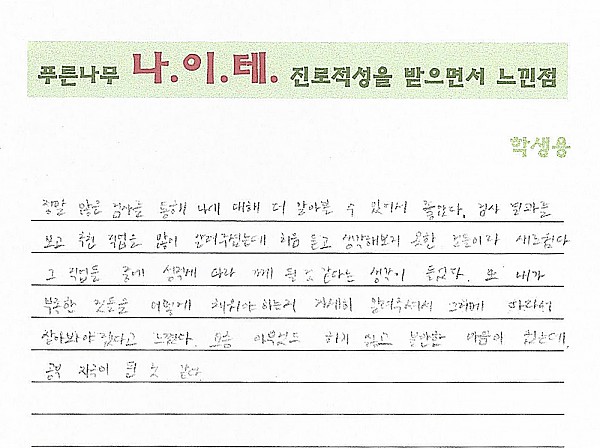 푸른나무 나.이.테. 진로적성을 받으면서 느낀점
학생용
정말 많은 검사를 통해 나에 대해 더 알아볼 수 있어서 좋았다. 검사 결과를
보고 추천 직업을 많이 알려주셨는데 처음 듣고 생각해보지 못한 것들이라 새로웠다
그 직업들 중에 성격에 따라 될 것 같다는 생각이 들었다. 또 내가
부족한 것들을 어떻게 채워야 하는지 자세히 알려주셔서 그렇게 따라서
살아봐야 겠다고 느꼈다. 요즘 아무것도 하기 싫고 불안한 마음이 컸는데,
공부 자극이 된 것 같다.